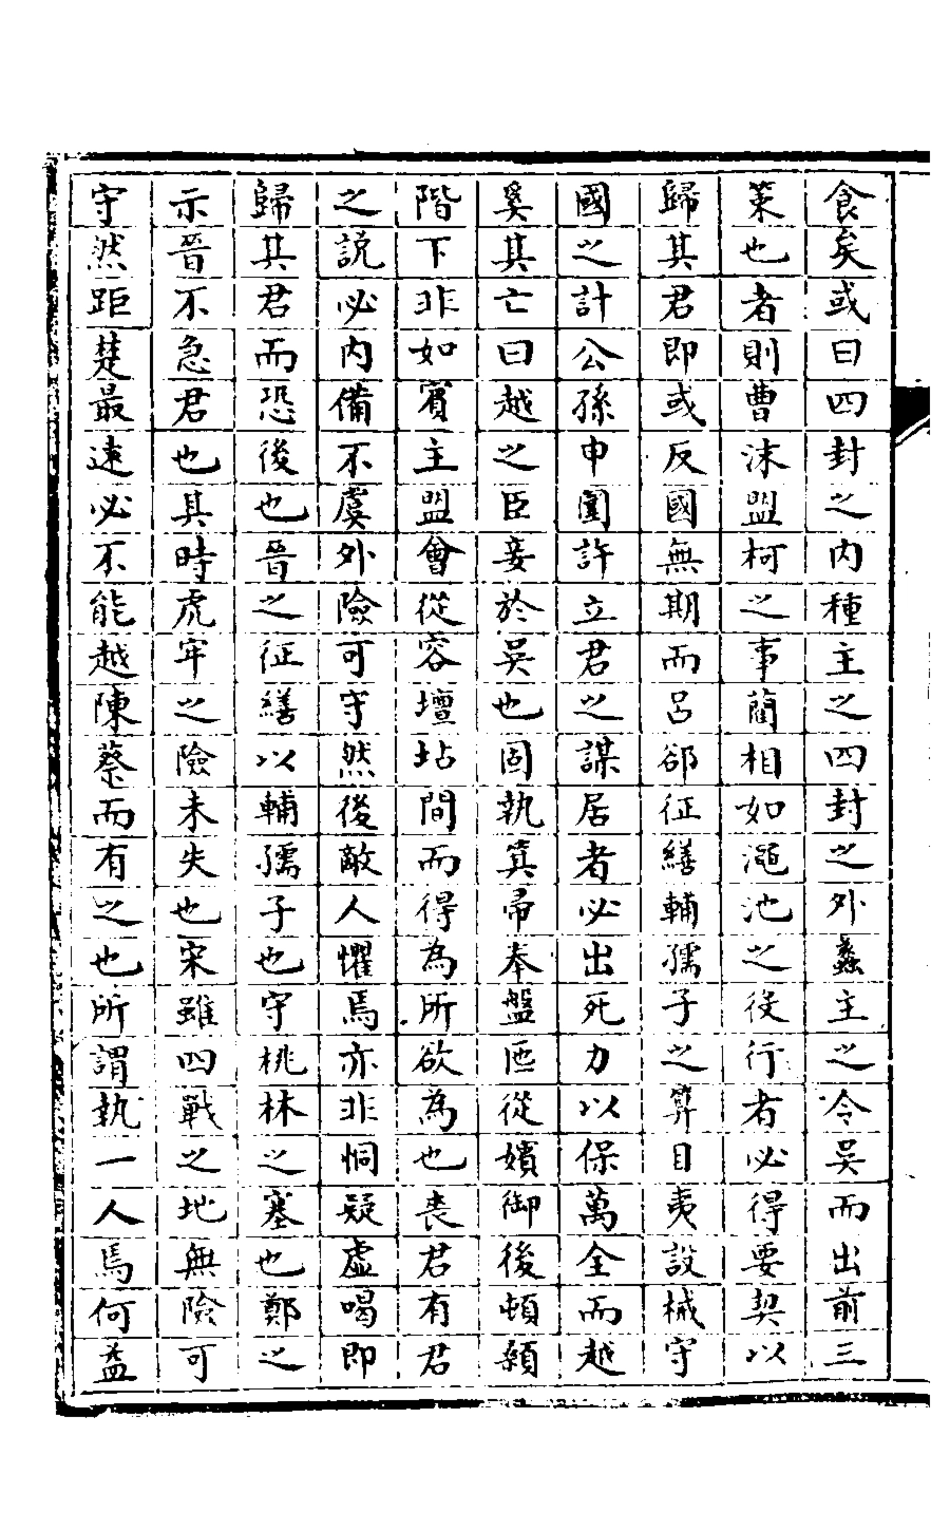 食矣或曰四封之内種主之四封之外蠡主之令吴而出前三
策也者則曹沬盟柯之事藺相如澠池之役行者必得要契以
歸其君即或反國無期而吕郤征繕輔孺子之算目夷設械守
國之計公孫申圍許立君之謀居者必出死力以保萬全而越
奚其亡曰越之臣妾於吴也固執箕帚奉盤匜從嬪御後頓顙
階下非如賓主盟會從容壇坫間而得為所欲為也喪君有君
之説必内備不虞外險可守然後敵人懼焉亦非恫疑虛喝即
歸其君而恐後也晉之征繕以輔孺子也守桃林之塞也鄭之
示晉不急君也其時虎牢之險未失也宋雖四戰之地無險可
守然距楚最遠必不能越陳蔡而有之也所謂執一人焉何益